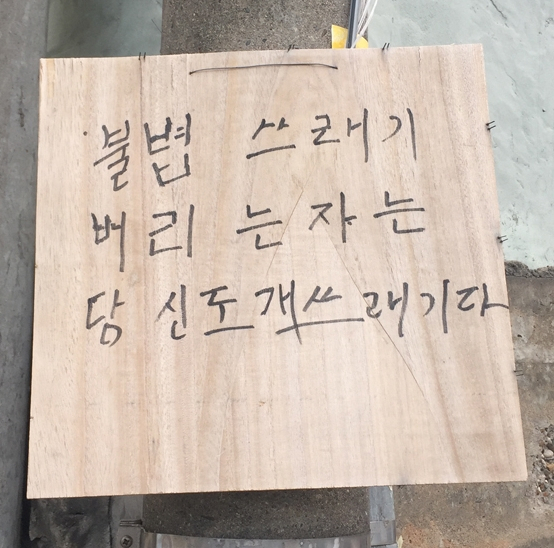 불법 쓰래기
버리는자는
당신도개쓰래기다